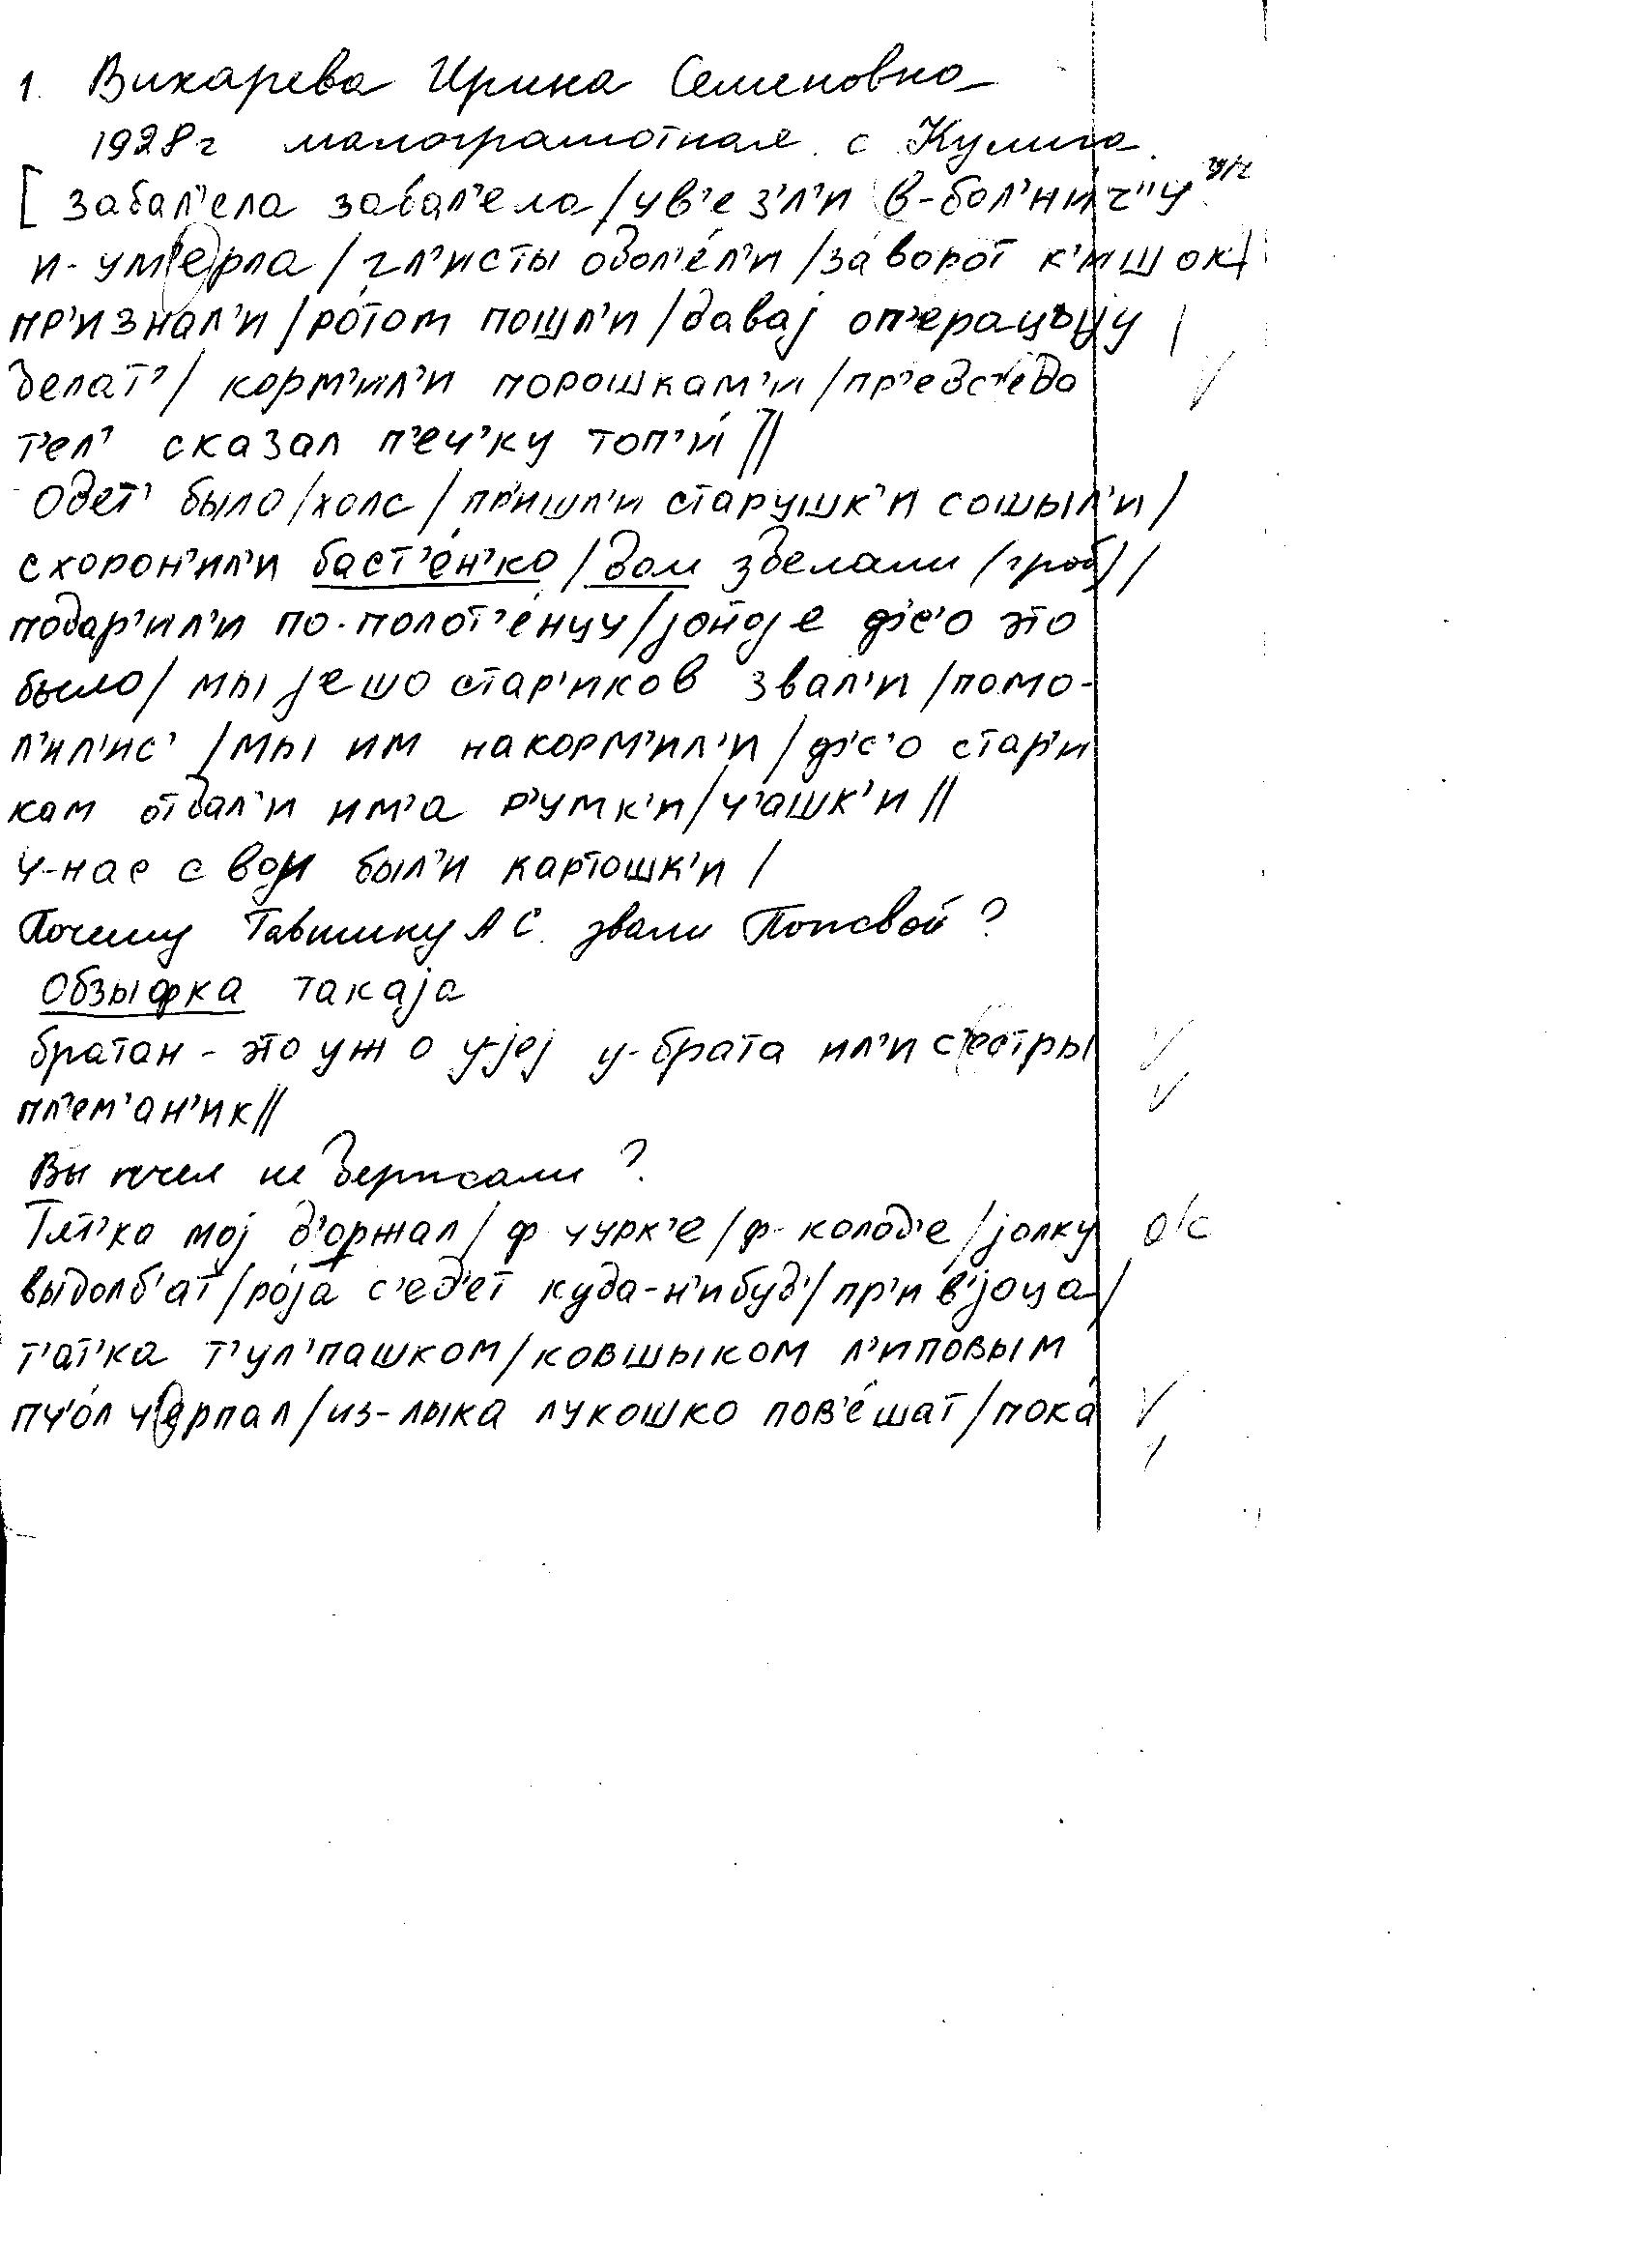 1. Вихарева Ирина Семеновна
1928 г малограмотная. с Кулига.
[ забал'ела забал'ела / ув'е з'л'и в-бол'нич"у
и-ум(е)рла / гл'исты одол'е́л'и / за́ворот к'ишок /
пр'изнал'и / ро́том пошл'и / давај оп'ерацыју /
делат' / корм'ил'и порошкам'и / пр'едс'еда
т'ел' сказал п'еч'ку топ'и́ //
Одет' было / холс / пр'ишл'и старушк'и сошыл'и /
схорон'ил'и баст'е́н'ко / дом зделали (гроб) /
подар'ил'и по-полот'е́нцу / јойоје ф'с'о это
было / мы јешо стар'иков звал'и / помо-
л'ил'ис' / мы им накорм'ил'и / ф'с'о стар'и
кам отдал'и им'а р'умк'и / ч'ашк'и //
у-нас свои был'и картошк'и /
Почему Тавшину А С. звали Поповой?
Обзыфка такаја
братан - это уж о у-јеј у-брата ил'и с'естры
пл'ем'ан'ик //
Вы пчел не держали?
Тят'ка мој д'оржал / ф чурк'е / ф-колод'е / јолку о/с
выдолб'ат / ро́ја с'ед'ет куда-н'ибуд' / пр'ив'јоца /
т'ат'ка т'ул'пашком / ковшыком л'иповым
пч'о́л ч(е)рпал / из-лыка лукошко пов'е́шат / пока́